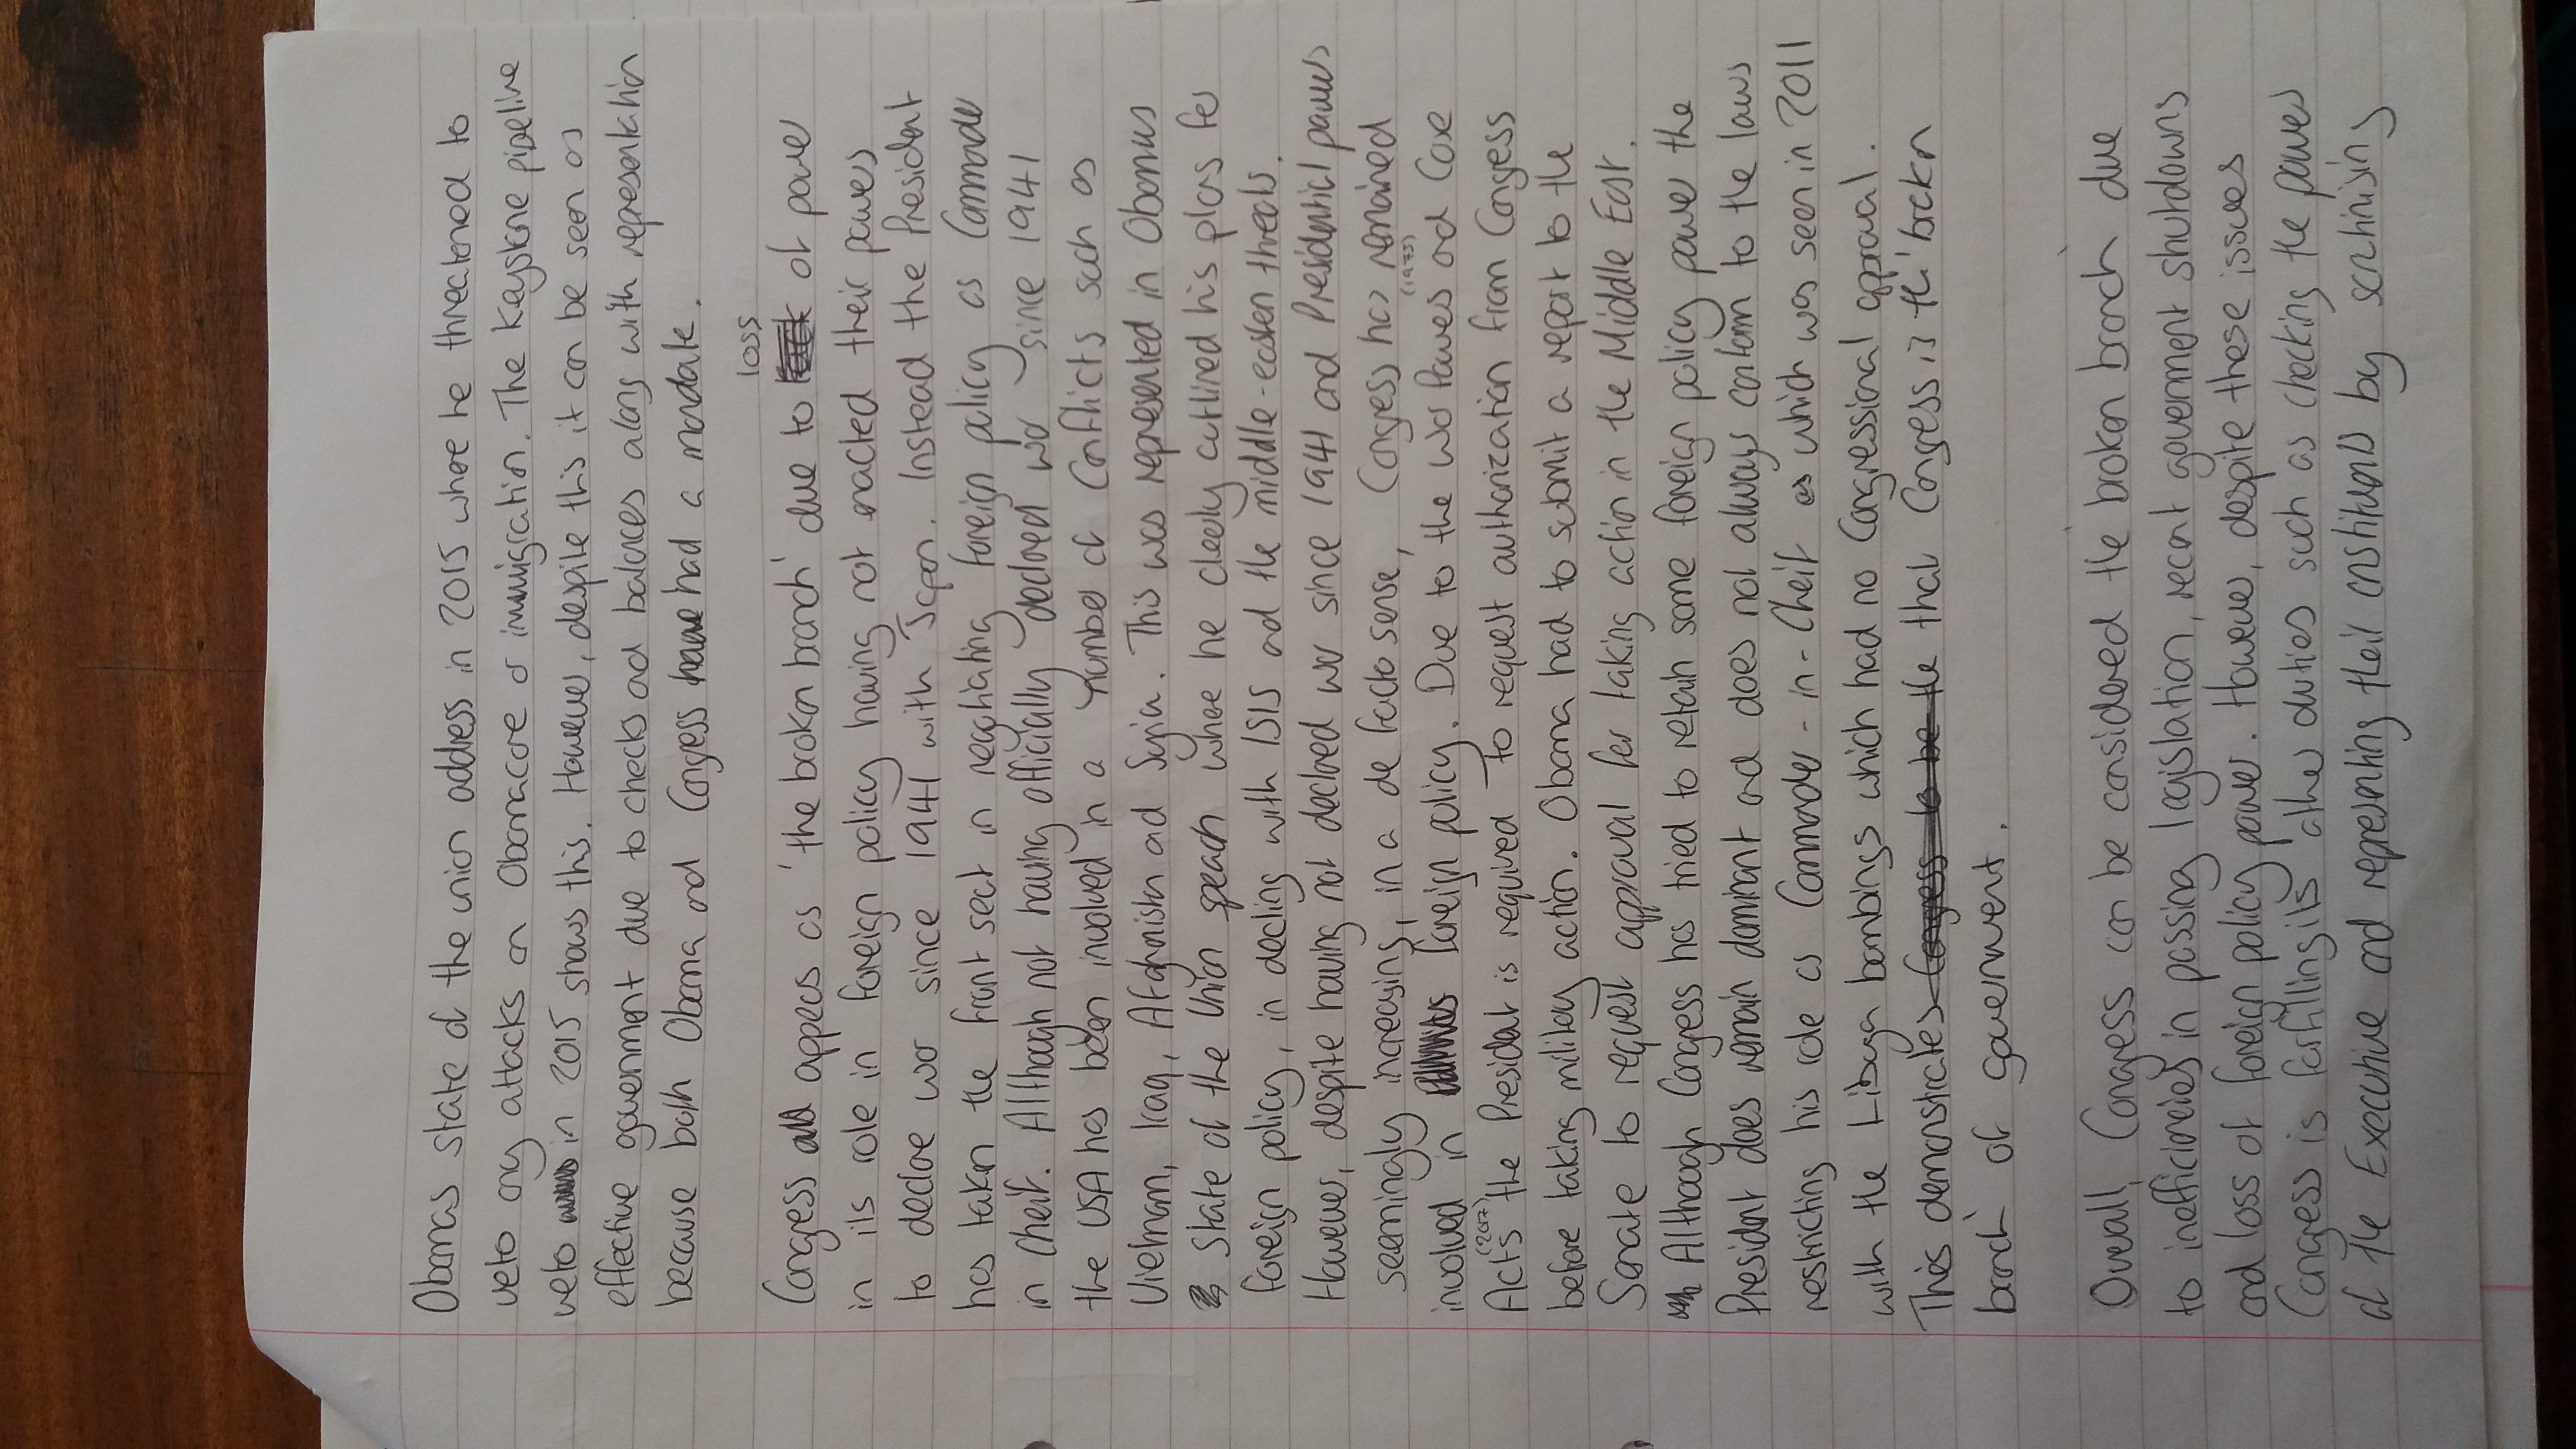 Obamas state of the union address in 2015 where he threatened to
veto any attacks on Obamacare or immigration. The Keystone pipeline
veto in 2015 shows this. However, despite this it can be seen as
effective government due to checks and balances along with representation
because both Obama and Congress had a mandate.
Congress appears as 'the broken branch' due to loss of power
in its role in foreign policy having not enacted their powers
to declare war since 1941 with Japan. Instead the President
has taken the front seat in negotiating foreign policy as Commander
in Cheif. Although not having officially declared war since 1941
the USA has been involved in a number of Conflicts such as
Vietnam, Iraq, Afghanistan and Syria. This was represented in Obamas
State of the Union speach where he clearly outlined his plans for
foreign policy, in dealing with ISIS and the middle-eastern threats.
However, despite having not declared war since 1941 and Presidential powers
seemingly increasing, in a de facto sense, Congress has remained
involved in foreign policy. Due to the War Powers (1973) and Case
Acts (1972) the President is required to request authorization from Congress
before taking military action. Obama had to submit a report to the
Senate to request approval for taking action in the Middle East.
Although Congress has tried to retain some foreign policy power the
President does remain dominant and does not always conform to the laws
restricting his role as Commander-in-Cheif which was seen in 2011
with the Libyan bombings which had no Congressional approval.
This demonstrates that Congress is the 'broken
branch' of government.
Overall, Congress can be considered the broken branch due
to inefficiencies in passing legislation, recent government shutdowns
and loss of foreign policy power. However, despite these issues
Congress is forfilling its other duties such as checking the power
of the Executive and representing their constituents by scrutinising